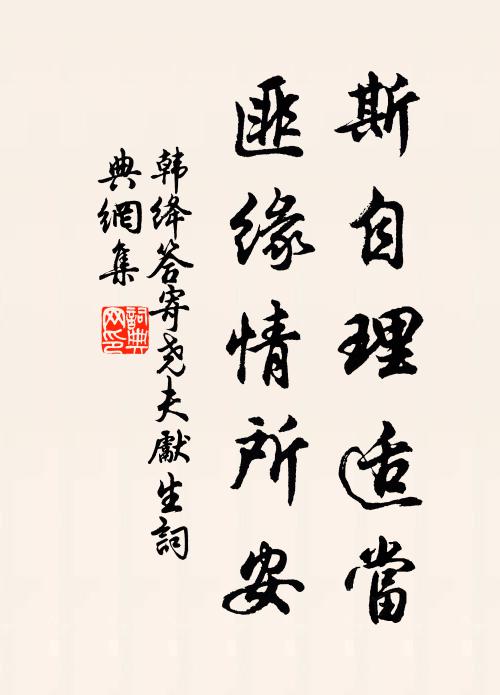 斯自理适當
匪緣情所安
韩绛答寄尧夫獻生詞
典網集
詞典
网印